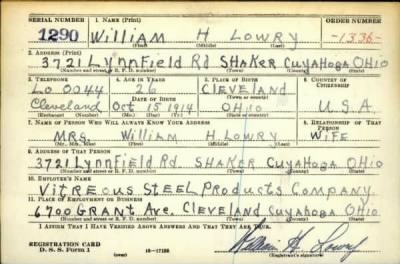 SERIAL NUMBER 1. NAME (Print) ORDER NUMBER
1290 William H Lowry 1336
(First) (Middle) (Last)
2. ADDRESS (Print)
3721 Lynnfield Rd Shaker Cuyahoga Ohio
(Number and street or R. F. D. number) (Town) (County) (State)
3. TELEPHONE 4. AGE IN YEARS 5. PLACE OF BIRTH 6. COUNTRY OF CITIZENSHIP
Lo 0044 26 Cleveland
DATE OF BIRTH (Town or county)
Cleveland Oct 15 1914 Ohio U.S.A.
(Exchange) (Number) (Mo.) (Day) (Yr.) (State or country)
7. NAME OF PERSON WHO WILL ALWAYS KNOW YOUR ADDRESS 8. RELATIONSHIP OF THAT PERSON
Mrs. William H. Lowry Wife
(Mr., Mrs., Miss) (First) (Middle) (Last)
9. ADDRESS OF THAT PERSON
3721 Lynnfield Rd. Shaker Cuyahoga Ohio
(Number and street or R. F. D. number) (Town) (County) (State)
10. EMPLOYER'S NAME
Vitreous Steel Products Company.
11. PLACE OF EMPLOYMENT OR BUSINESS
6700 Grant Ave. Cleveland Cuyahoga Ohio
(Number and street or R. F. D. number) (Town) (County) (State)
I AFFIRM THAT I HAVE VERIFIED ABOVE ANSWERS AND THAT THEY ARE TRUE.
REGISTRATION CARD
D. S. S. Form 1 16—17105 William H. Lowry
(Registrant's signature)